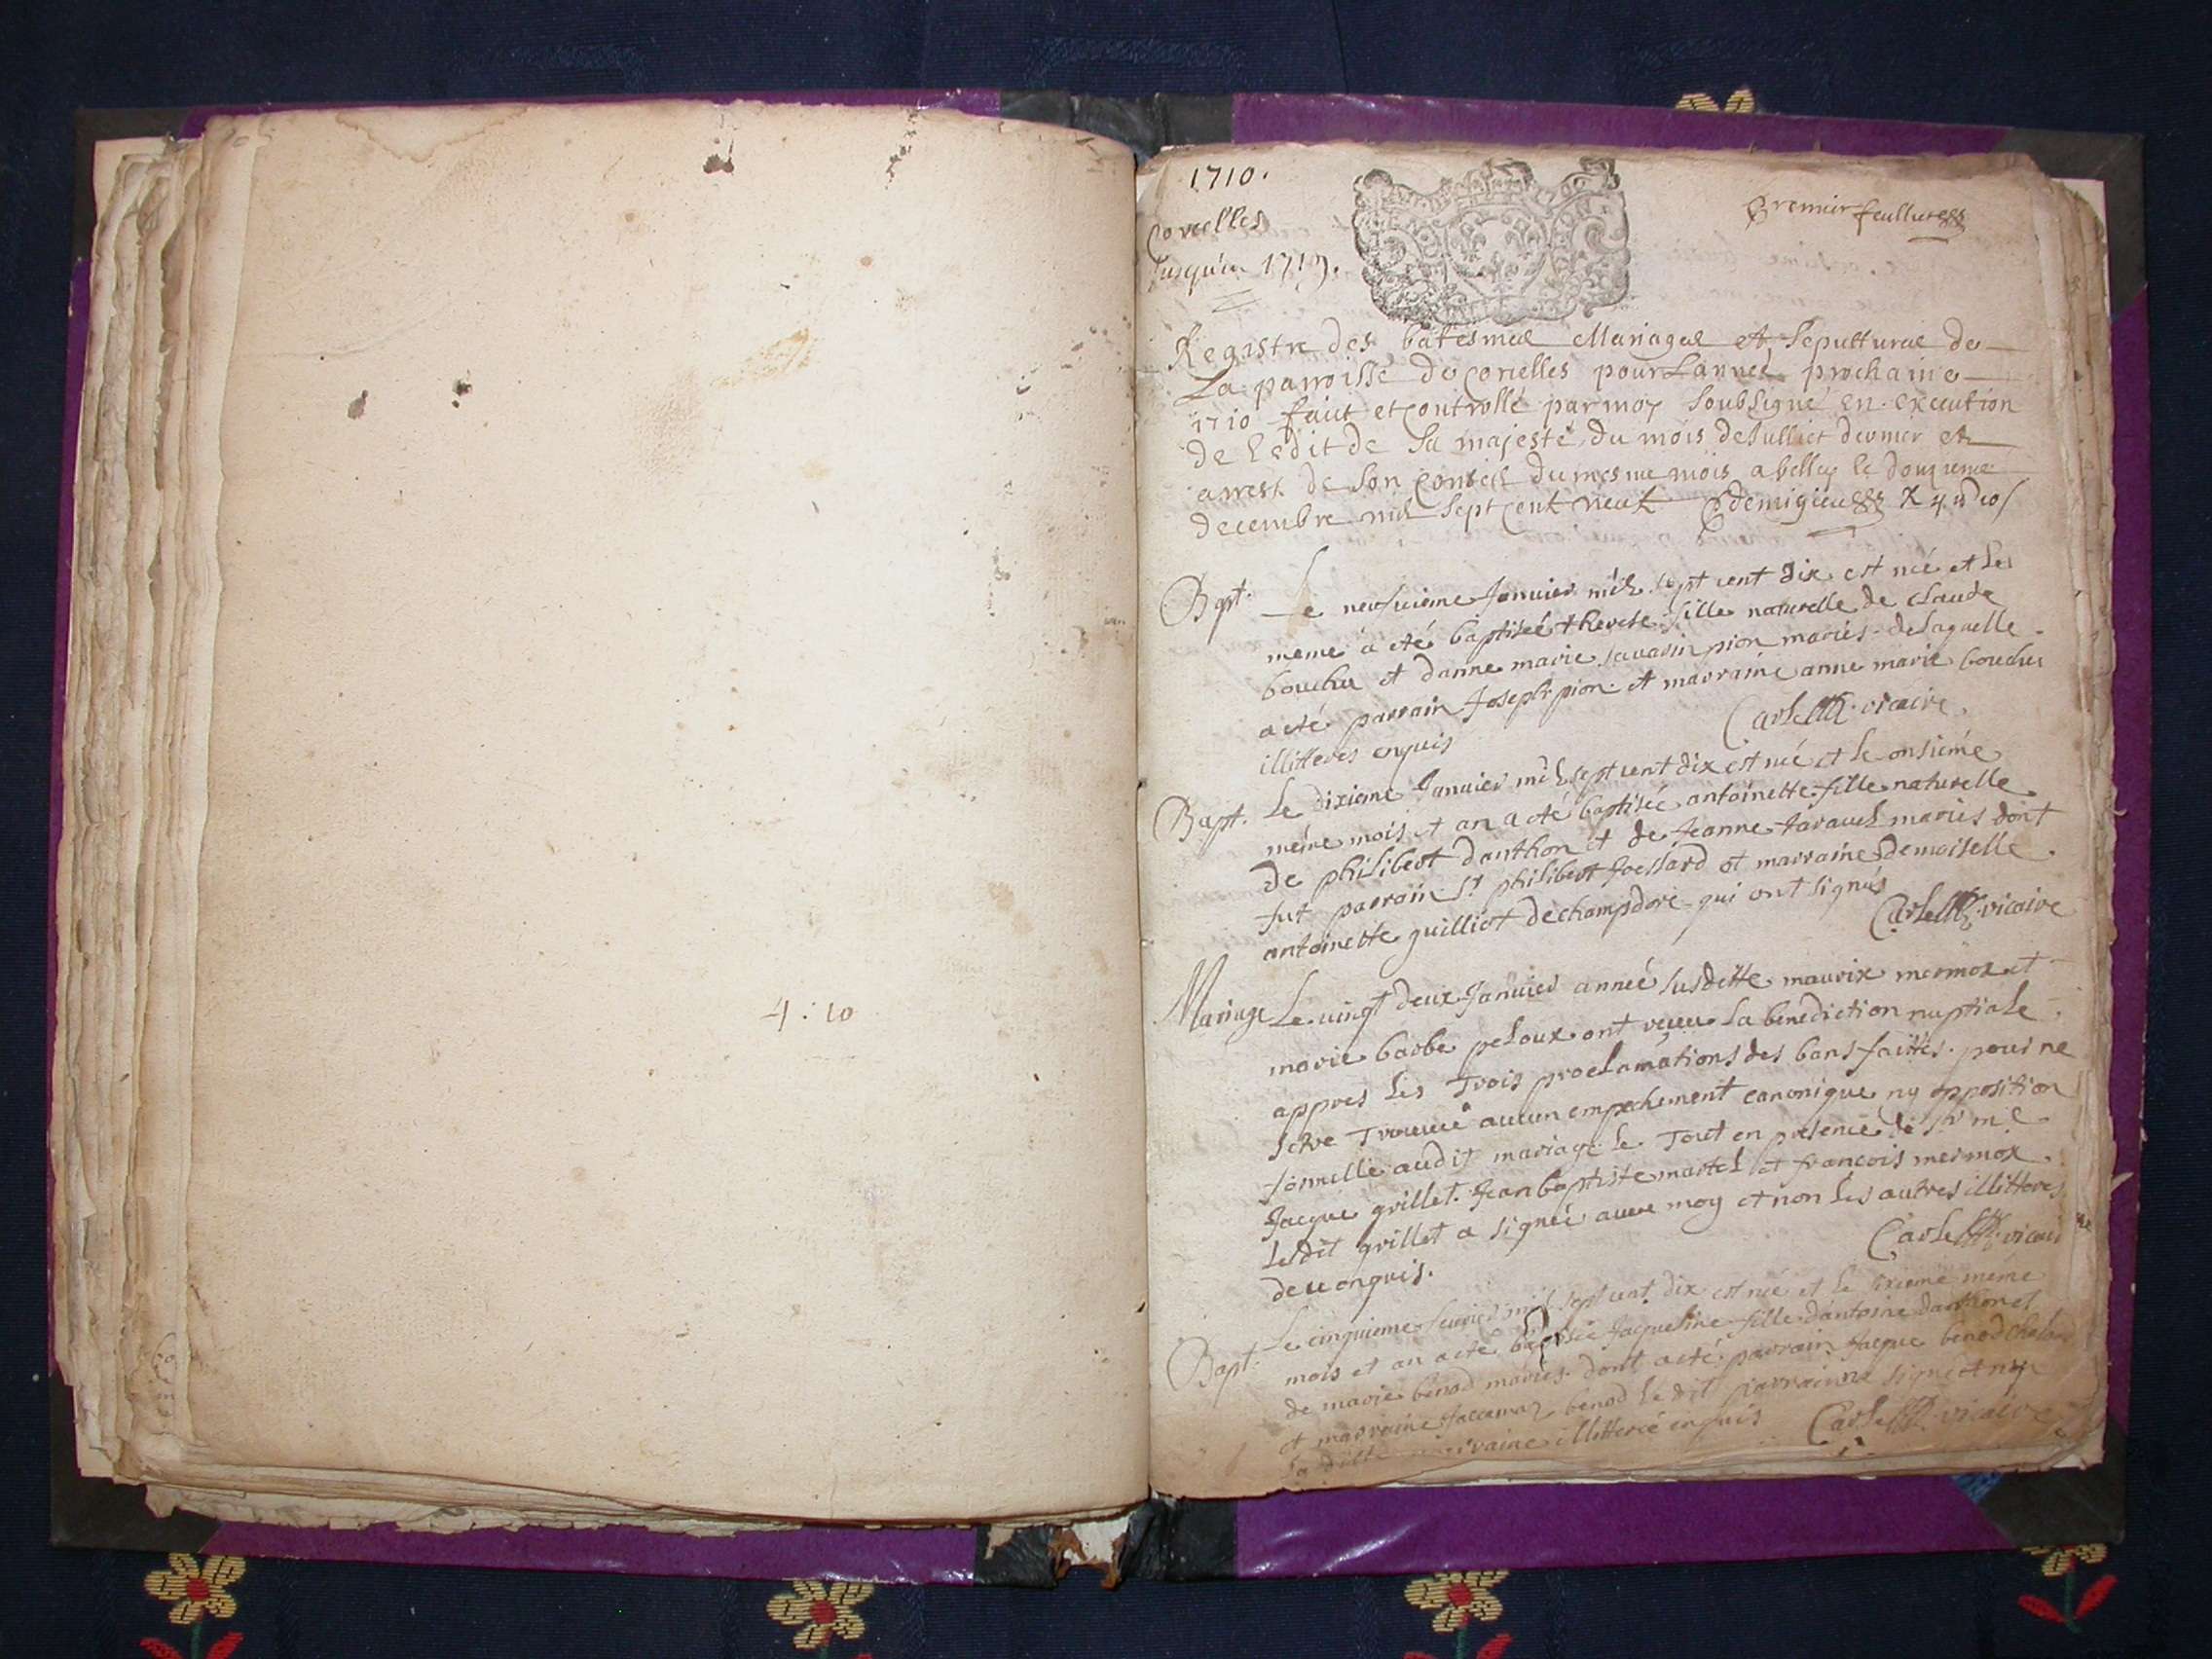 4 : 10
1710.
Corcelles
Jusqu'en 1719.
Premier feullet
Registre des batesmes Mariages et Sepultures de
La parroisse de Corcelles pour Lannee prochaine
1710 faict et controllé par moy Soubsigné en execution
de L'edit de Sa majesté du mois de Julliet dernier et
arrest de Son Conseil du mesme mois a belley le douzieme
decembre mil sept cent neuf
Bapt. Le neufuieme Januier mil sept cent dix est née et le
meme a eté baptisée therese fille naturelle de claude
bouchu et danne marie sauarin pion mariés de laquelle
a eté parrain Joseph pion et marraine anne marie bouchu
illitteres enquis Carle vicaire.
Bapt. Le dixieme Januier mil sept cent dix est née et le onsieme
même mois et an a eté baptisée antoinette fille naturelle
De philibert danthon et de Jeanne Jaravel mariés dont
fut parrain Sr philibert Jossard et marraine Demoiselle
antoinette guilliot dechampdore qui ont signés
Carle vicaire
Mariage Le vingt deux Januier année susditte maurix mermox et
marie barbe peloux ont reçeu la benediction nuptiale
appres les Trois proclamations des bans faittes pour ne
setre Trouuée aucun empechement canonique ny opposition
formelle audit mariage le Tout en presence de
Jacque grillet. Jean baptiste martel et francois mermox
Ledit grillet a signée auec moy et non les autres illitteres
de ce enquis. Carle vicaire
Bapt. Le cinquieme feurier mil sept cent dix est née et le sixieme même
mois et an a eté baptisée Jacqueline fille dantoine danthon et
de marie benod mariés dont a eté parrain Jacque benod
et marraine benod le dit parrain signe et
la ditte marraine illitterée enquis Carle vicaire